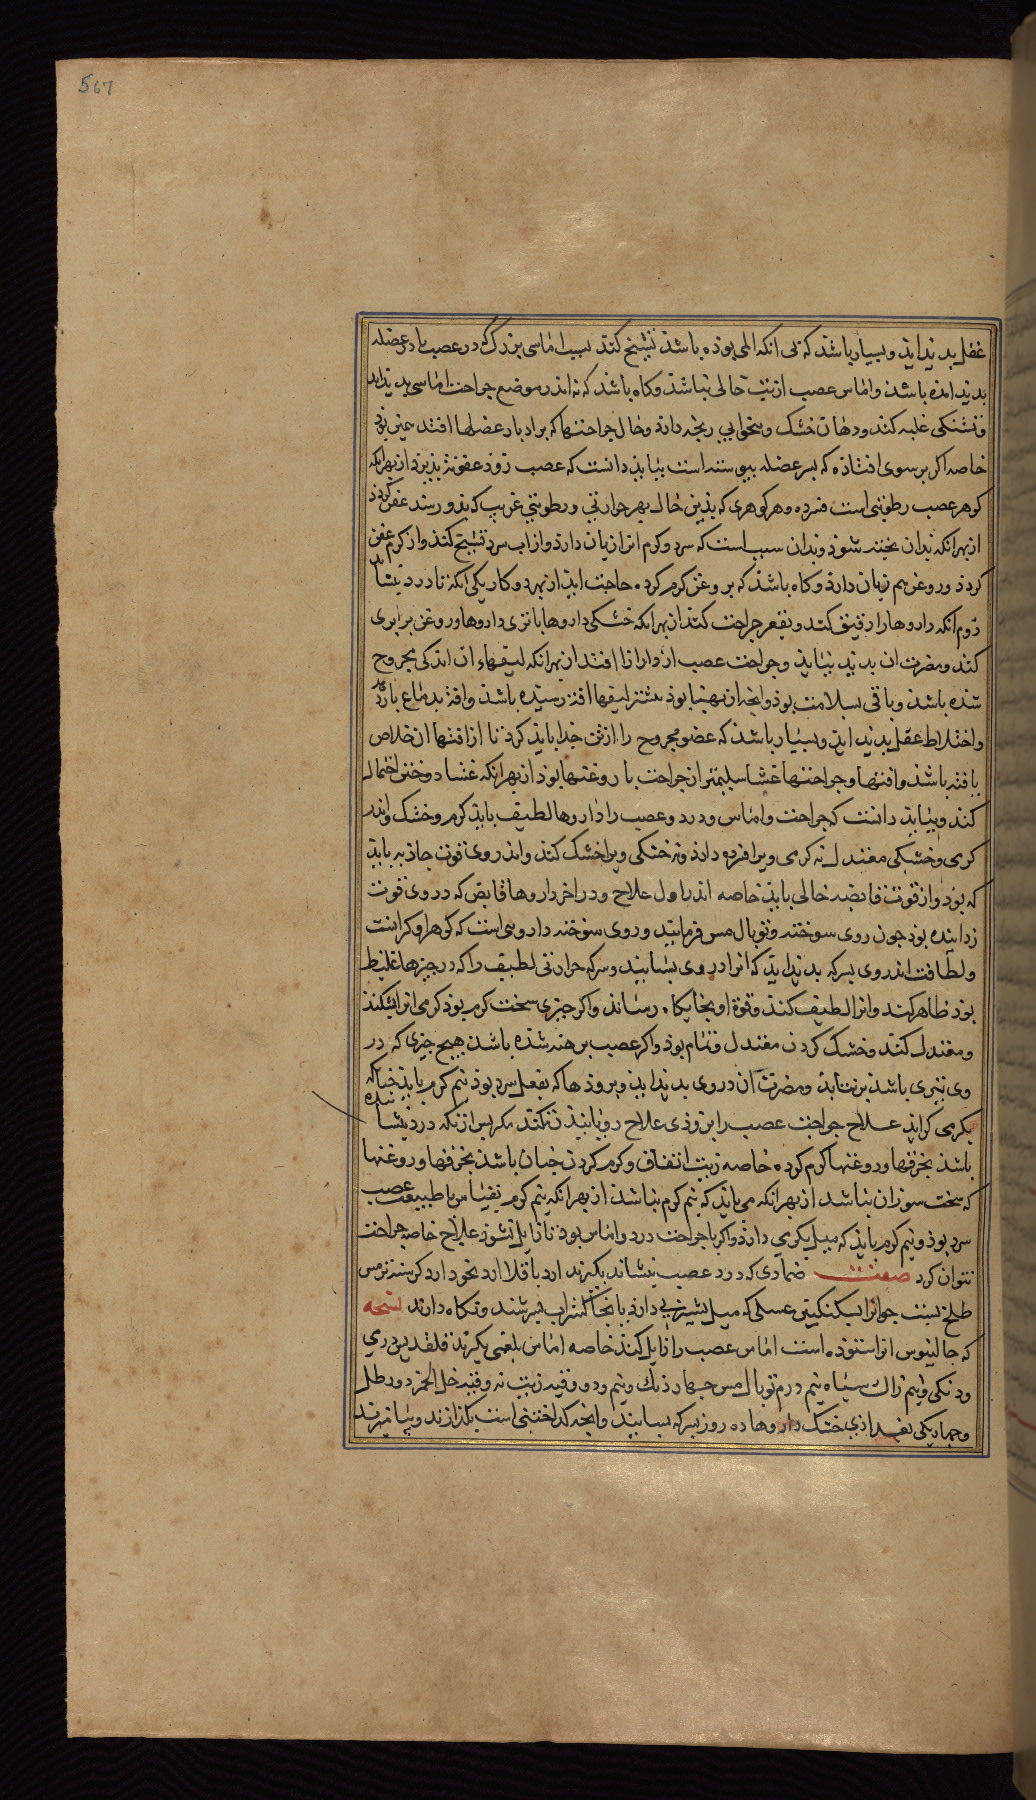 567
عقل بدید اید و بسیار باشد که بی انکه المی بوده باشد تشنج کند بسبب اماسی بزرگ که در عصب یا در عضله
بدید امده باشد و اماس عصب از تب خالی نباشد و کاه باشد که نه اندر موضع جراحت اماسی بدید اید
و تشنکی غلبه کند و دهان خشک و بیخوابی رنجه دارد و حال جراحتها که بر اوتار عضلها افتد همین بود
خاصه اکر بر سوی افتاده که بسر عضله بیوسته است بباید دانست که عصب زود عفونة بذیرد از بهر انکه
کوهر عصب رطوبتی است فسرده و هر کوهری که بذین حال بود حرارتی و رطوبتی غریب که بدو رسد عفن کردد
از بهر انکه بدان بخته شود و بدان سبب است که سرد و کرم انرا زیان دارد و از اب سرد تشنج کند و از کرم عفن
کردد و روغن هم زیان دارد و کاه باشد که بروغن کرم کرده حاجت اید از بهر دو کار یکی انکه تا درد بنشاند
دوم انکه داروها را رقیق کند و بقعر جراحت کند از بهر انکه خشکی داروها با تری داروها و روغن برابری
کند و مضرت ان بدید نیاید و جراحت عصب از وارانا افتد از بهر انکه لیفهاء ان اندکی مجروح
شده باشد و باقی بسلامت بود و انچه از بهنا بود بیشتر لیفها افة رسیده باشد و افة بدماغ باز دهد
و اختلاط عقل بدید اید و بسیار باشد که عضو مجروح را از تن جدا باید کرد تا از افتها ان خلاص
یافته باشد و افتها و جراحتها غشا سلیمتر از جراحت با روغنها بود از بهر انکه غشا دوختن احتمال
کند و بباید دانست که جراحت و اماس و درد و عصب را داروها لطیف باید کرم و خشک و اندر
کرمی و خشکی معتدل نه کرمی ویرا فزوده داند و نه خشکی ویرا خشک کند و اندر وی قوت جاذبه باید
که بود و از قوت قابضه خالی باید خاصه اندر اول علاج و در اخر داروها قابض که در وی قوت
زداینده بود جون روی سوخته و توبال مس فرمایند و روی سوخته داروی است که کوهر او کرانست
و لطافت اندر وی بسرکه بدید اید که انرا در وی بسایند و سرکه حرارتی لطیف را که در جیزها غلیظ
بود ظاهر کند و انرا لطیف کند و قوة او بجایکاه رساند و اکر جیزی سخت کرم بود کرمی انرا بشکند
و معتدل کند و خشک کردن معتدل و تمام بود و اکر عصب برهنه شده باشد هیچ جیزی که در
وی تیزی باشد بر نتابد و مضرت ان در وی بدید اید و بروزها که بفعل سرد بود نیم کرم باید جنانکه
بکرمی کراید علاج جراحت عصب را بزودی علاج رویانیدن نکنند مکر بس از انکه درد نشانده
باشد بخرقها و روغنها کرم کرده خاصه زیت انفاق و کرم کردن جنان باشد بخرقها و روغنها
که سخت سوزان نباشد از بهر انکه می باید که نیم کرم نباشد از بهر انکه نیم کرم بقیاس با طبیعت عصب
سرد بود و نیم کرم باید که میل بکرمی دارد و اکر با جراحت درد و اماس بود تا زایل نشود علاج خاصه جراحت
نتوان کرد صفت ضمادی که درد عصب بنشاند بکیرند ارد باقلا ارد نخود ارد کرسنه ترمس
طلخ بست جو انرا بسکنکبین عسلی که میل بشیرینی دارد یا بیختج شراب بسرشند و نکاه دارند نسخه
که جالینوس انرا ستوده است اماس عصب را زایل کند خاصه اماس بلغمی بکیرند قلقدیس دری
ودنکی و نیم زاک سیاه نیم درم توبال مس جهار دنک و نیم و دو وقیه زیت نه وقیه خل الخمر دو رطل
وجهار یکی بغدادی خشک داروها ده روز بسرکه بسایند و انچه کداختنی است بکدازند و بیامیزند